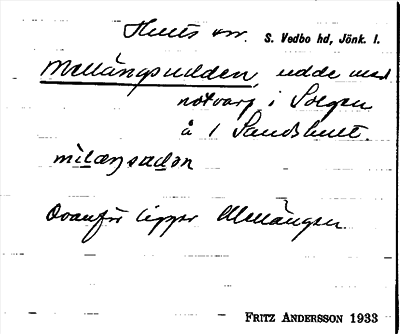 Hults sn. S. Vedbo hd, Jönk. l.
Mellängsudden, udde med
notvarp i Solgen
å 1 Sandshult.
Ovanför ligger Mellängen.
FRITZ ANDERSSON 1933